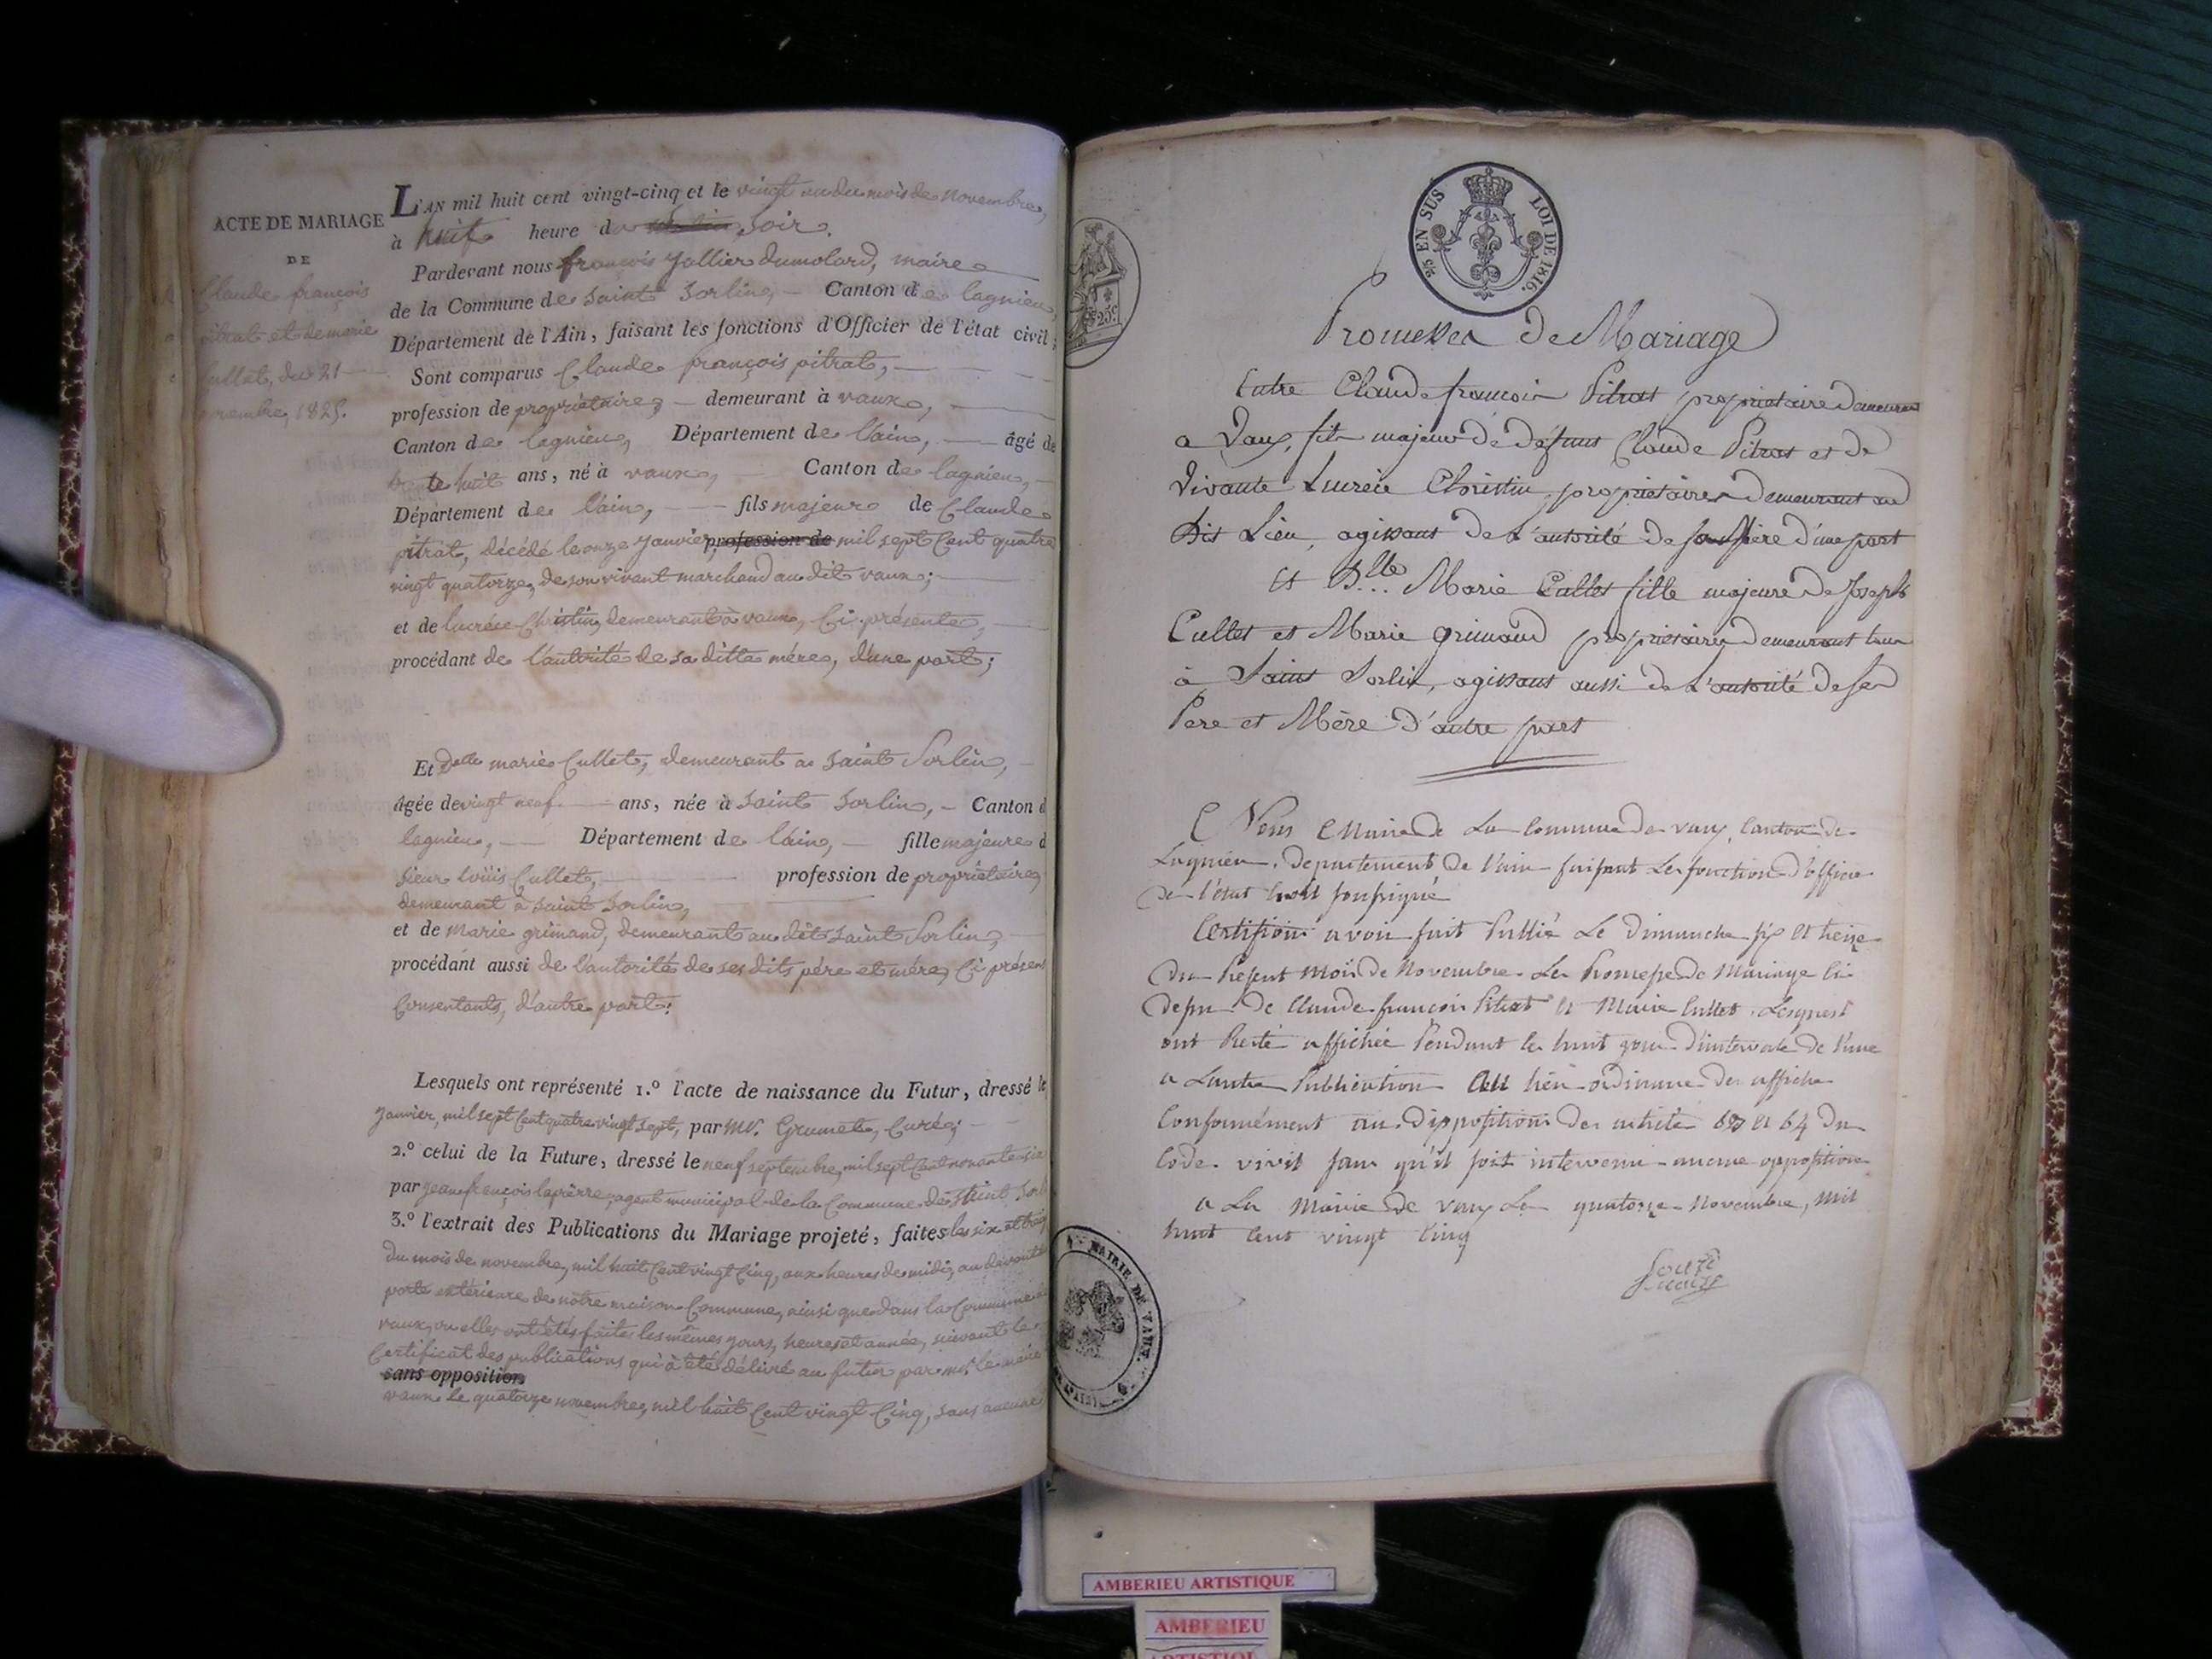 ACTE DE MARIAGE
DE
Claude françois
pitrat et de marie
Cullet, du 21
novembre, 1825.
L'AN mil huit cent vingt-cinq et le vingt un du mois de novembre,
à huit heure du matin soir.
Pardevant nous françois Gallier dumolard, maire
de la Commune de saint Sorlin, Canton de lagnieu,
Département de l'Ain, faisant les fonctions d'Officier de l'état civil;
Sont comparus Claude françois pitrat,
profession de propriétaire, demeurant à vaux,
Canton de lagnieu, Département de l'ain, âgé de
trente huit ans, né à vaux, Canton de lagnieu,
Département de l'ain, fils majeur de Claude
pitrat, décédé le onze janvier profession de mil sept Cent quatre
vingt quatorze, de son vivant marchand au dit vaux;
et de lucréce Christin, demeurant à vaux, Ci présente,
procédant de l'autorité de sa ditte mére, d'une part;
Et Delle marie Cullet, demeurant a saint Sorlin,
âgée de vingt neuf ans, née à saint Sorlin, Canton d
lagnieu, Département de l'ain, fille majeure d
sieur loüis Cullet, profession de propriétaire,
demeurant à saint Sorlin,
et de marie grimand, demeurant au dit saint Sorlin,
procédant aussi de l'autorité de ses dits pére et mére, Ci présen
Consentants, d'autre part:
Lesquels ont représenté 1.º l'acte de naissance du Futur, dressé le
janvier, mil sept Cent quatre vingt sept, par mr. Grumet, Curé;
2.º celui de la Future, dressé le neuf septembre, mil sept Cent nonante six
par jean françois lapierre, agent municipal de la Commune de saint Sorl
3.º l'extrait des Publications du Mariage projeté, faites les six et treize
du mois de novembre, mil huit Cent vingt Cinq, aux heures de midi, au devant
porte extérieure de nôtre maison Commune, ainsi que dans la Commune de
vaux, ou elles ont êtés faites les mêmes jours, heures et année, suivant le
Certificat des publications qui à êté délivré au futur par mr. le maire
sans opposition
vaux le quatorze novembre, mil huit Cent vingt Cinq, sans aucune
25 EN SUS
LOI DE 1816.
25c.
Promesses de Mariage
Entre Claude françois Pitrat propriétaire demeurant
a Vaux, fils majeur de défunt Claude Pitrat et de
Vivante Lucréce Christin, propriétaires demeurant au
Dit Lieu, agissant de L'autorité de sa Mère d'une part
Et Dlle... Marie Cullet fille majeure de Joseph
Cullet et Marie grimand propriétaires demeurant tous
à Saint Sorlin, agissant aussi de L'autorité de ses
Pere et Mère d'autre part
Nous Maire de La Commune de vaux, Canton de
Lagnieu, departement de l'ain faisant Les fonction d'officier
de l'état Civil soussigné
Certifions avoir fait Publié Le dimanche six et treize
du Présent mois de Novembre Les Promesse de Mariage Ci
depu de Claude françois Pitrat et Marie Cullet, Lesquest
ont Resté affichée Pendant les huit jour d'intervale de l'une
a Lautre Publication au lieu ordinaire des affiche
Conformément au dispposition des article 63 et 64 du
Code vivil sans qu'il soit intervenu aucune oppositions
a La Mairie de vaux Le quatorze Novembre, mil
huit Cent vingt Cinq
MAIRIE DE VAUX.
AMBERIEU ARTISTIQUE
AMBERIEU
ARTISTIQUE